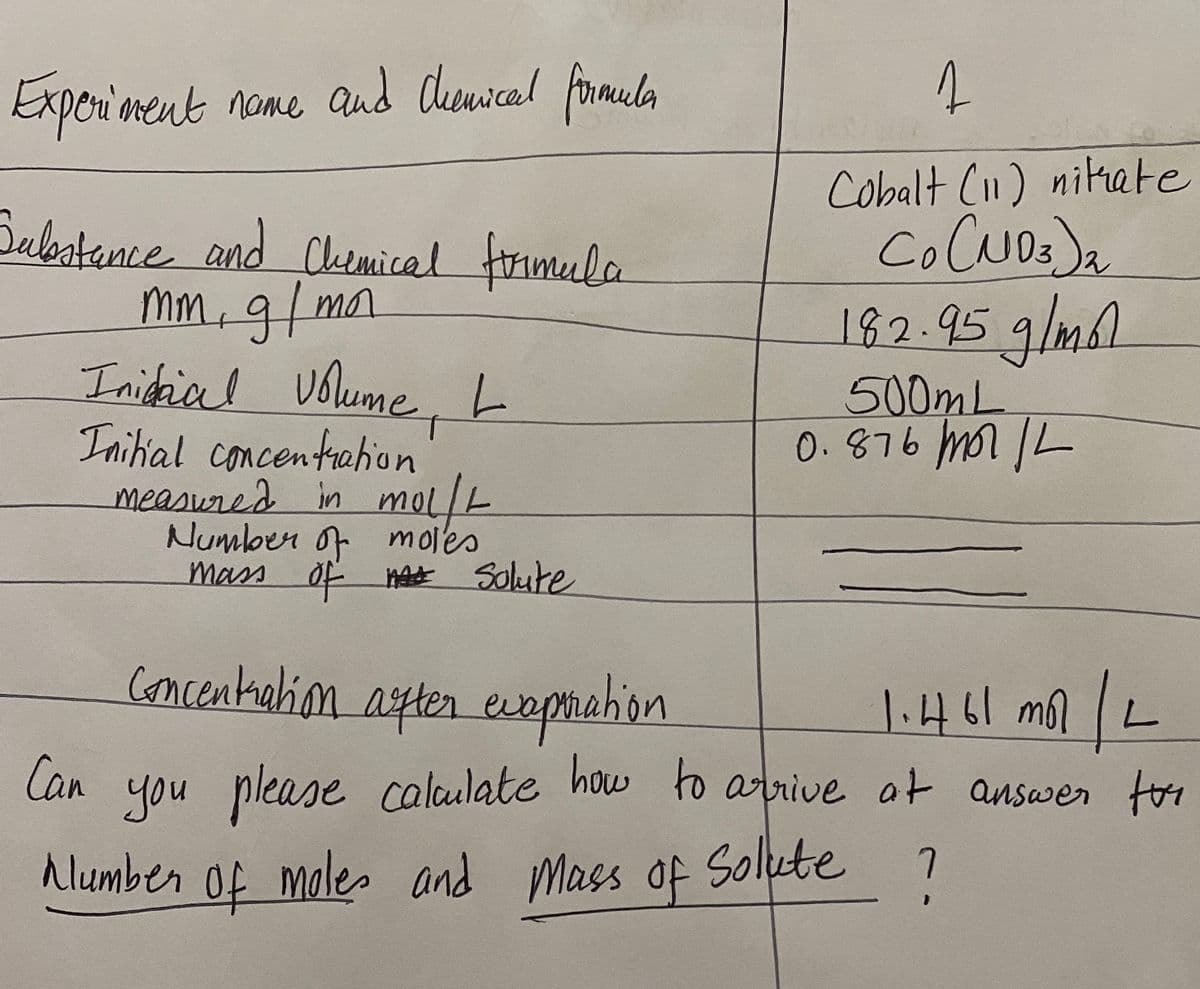 Experiment name and Chemical formula 1
Cobalt (11) nitrate
Substance and Chemical formula Co(NO3)2
mm, g/mol 182.95 g/mol
Initial Volume, L 500mL
Initial concentration 0.876 mol/L
measured in mol/L
Number of moles
mass of Solute
Concentration after evaporation 1.461 mol/L
Can you please calculate how to arrive at answer for
Number of moles and Mass of Solute ?